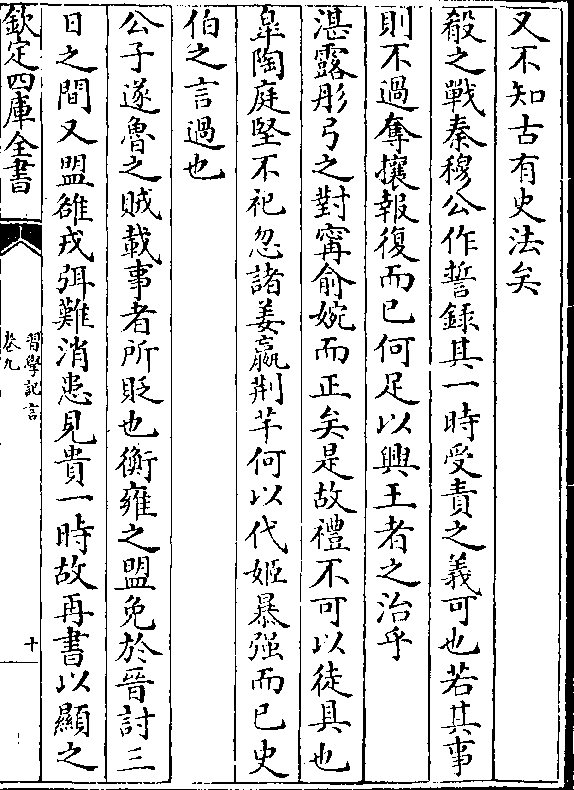 又不知古有史法矣
殽之戰秦穆公作誓錄其一時受責之義可也若其事
則不過奪攘報復而已何足以興王者之治乎
湛露彤弓之對甯俞婉而正矣是故禮不可以徒具也
臯陶庭堅不祀忽諸姜嬴荆芊何以代姬暴强而已史
伯之言過也
公子遂魯之賊載事者所貶也衡雍之盟免於晉討三
日之間又盟雒戎弭難消患見貴一時故再書以顯之
欽定四庫全書
習學記言
卷九
十